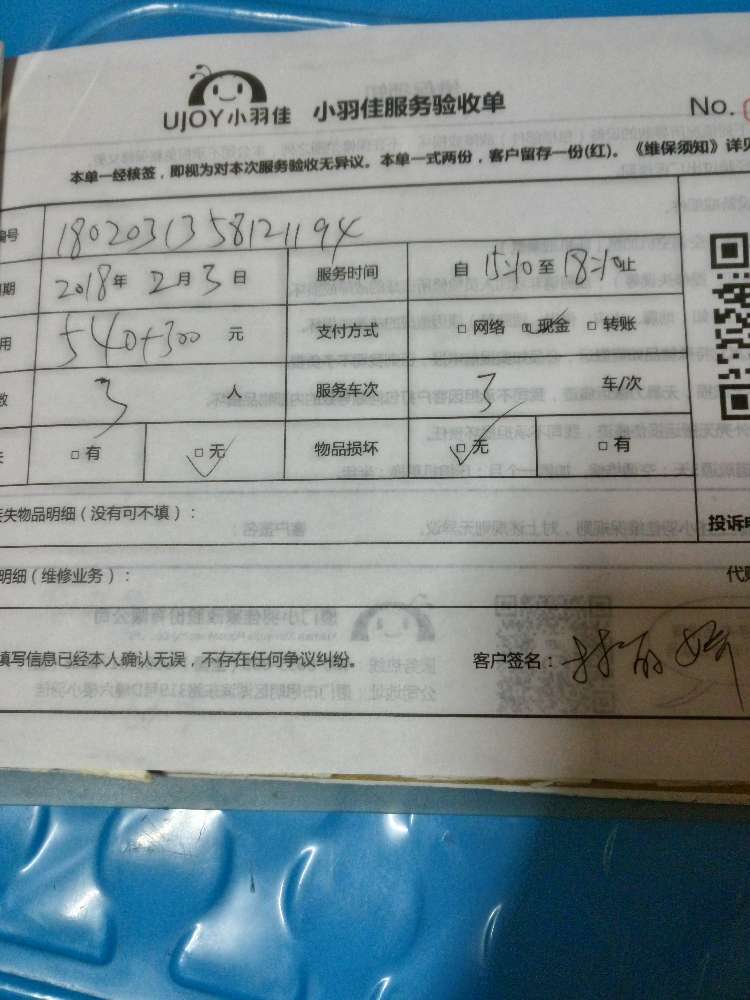 UJOY小羽佳 小羽佳服务验收单 No.
本单一经核签，即视为对本次服务验收无异议。本单一式两份，客户留存一份(红)。《维保须知》详见
编号 1802031358121194
期 2018年 2月 3日 服务时间 自 15:10 至 18:10止
用 540+300 元 支付方式 □ 网络 ☑ 现金 □ 转账
数 3 人 服务车次 3 车/次
□ 有 □ 无 物品损坏 □ 无 □ 有
失物品明细（没有可不填）：
投诉电
明细（维修业务）： 代
填写信息已经本人确认无误，不存在任何争议纠纷。 客户签名：